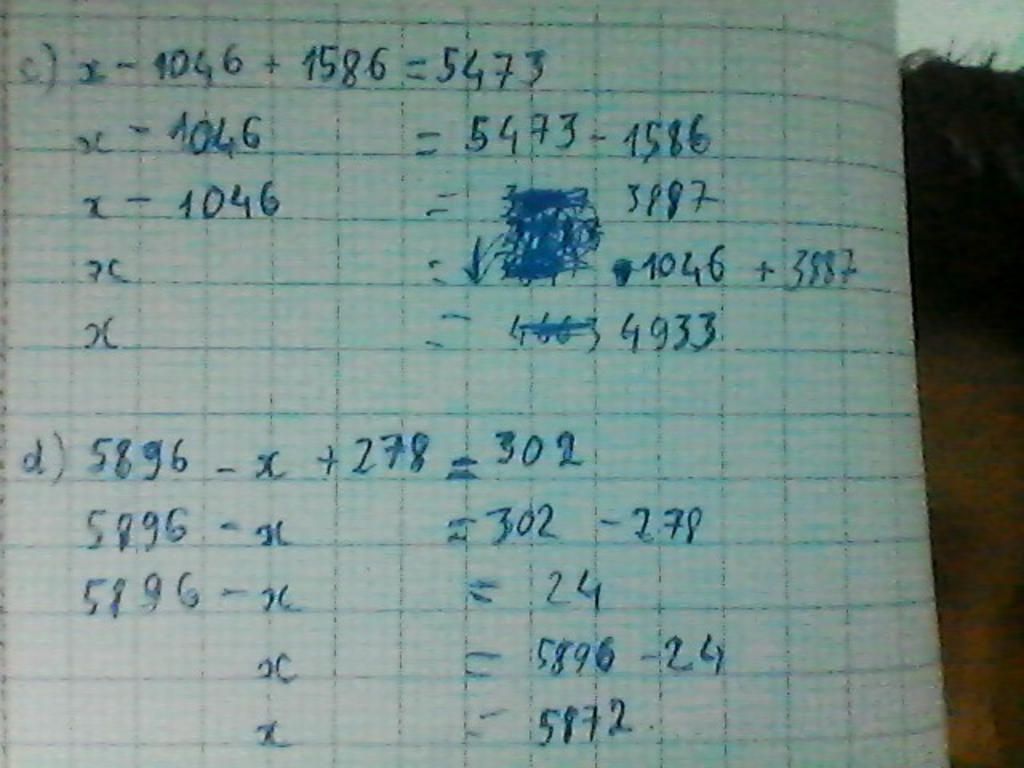 c) x - 1046 + 1586 = 5473
x - 1046 = 5473 - 1586
x - 1046 = 3887
x = 1046 + 3887
x = 4663 4933
d) 5896 - x + 278 = 302
5896 - x = 302 - 278
5896 - x = 24
x = 5896 - 24
x = 5872